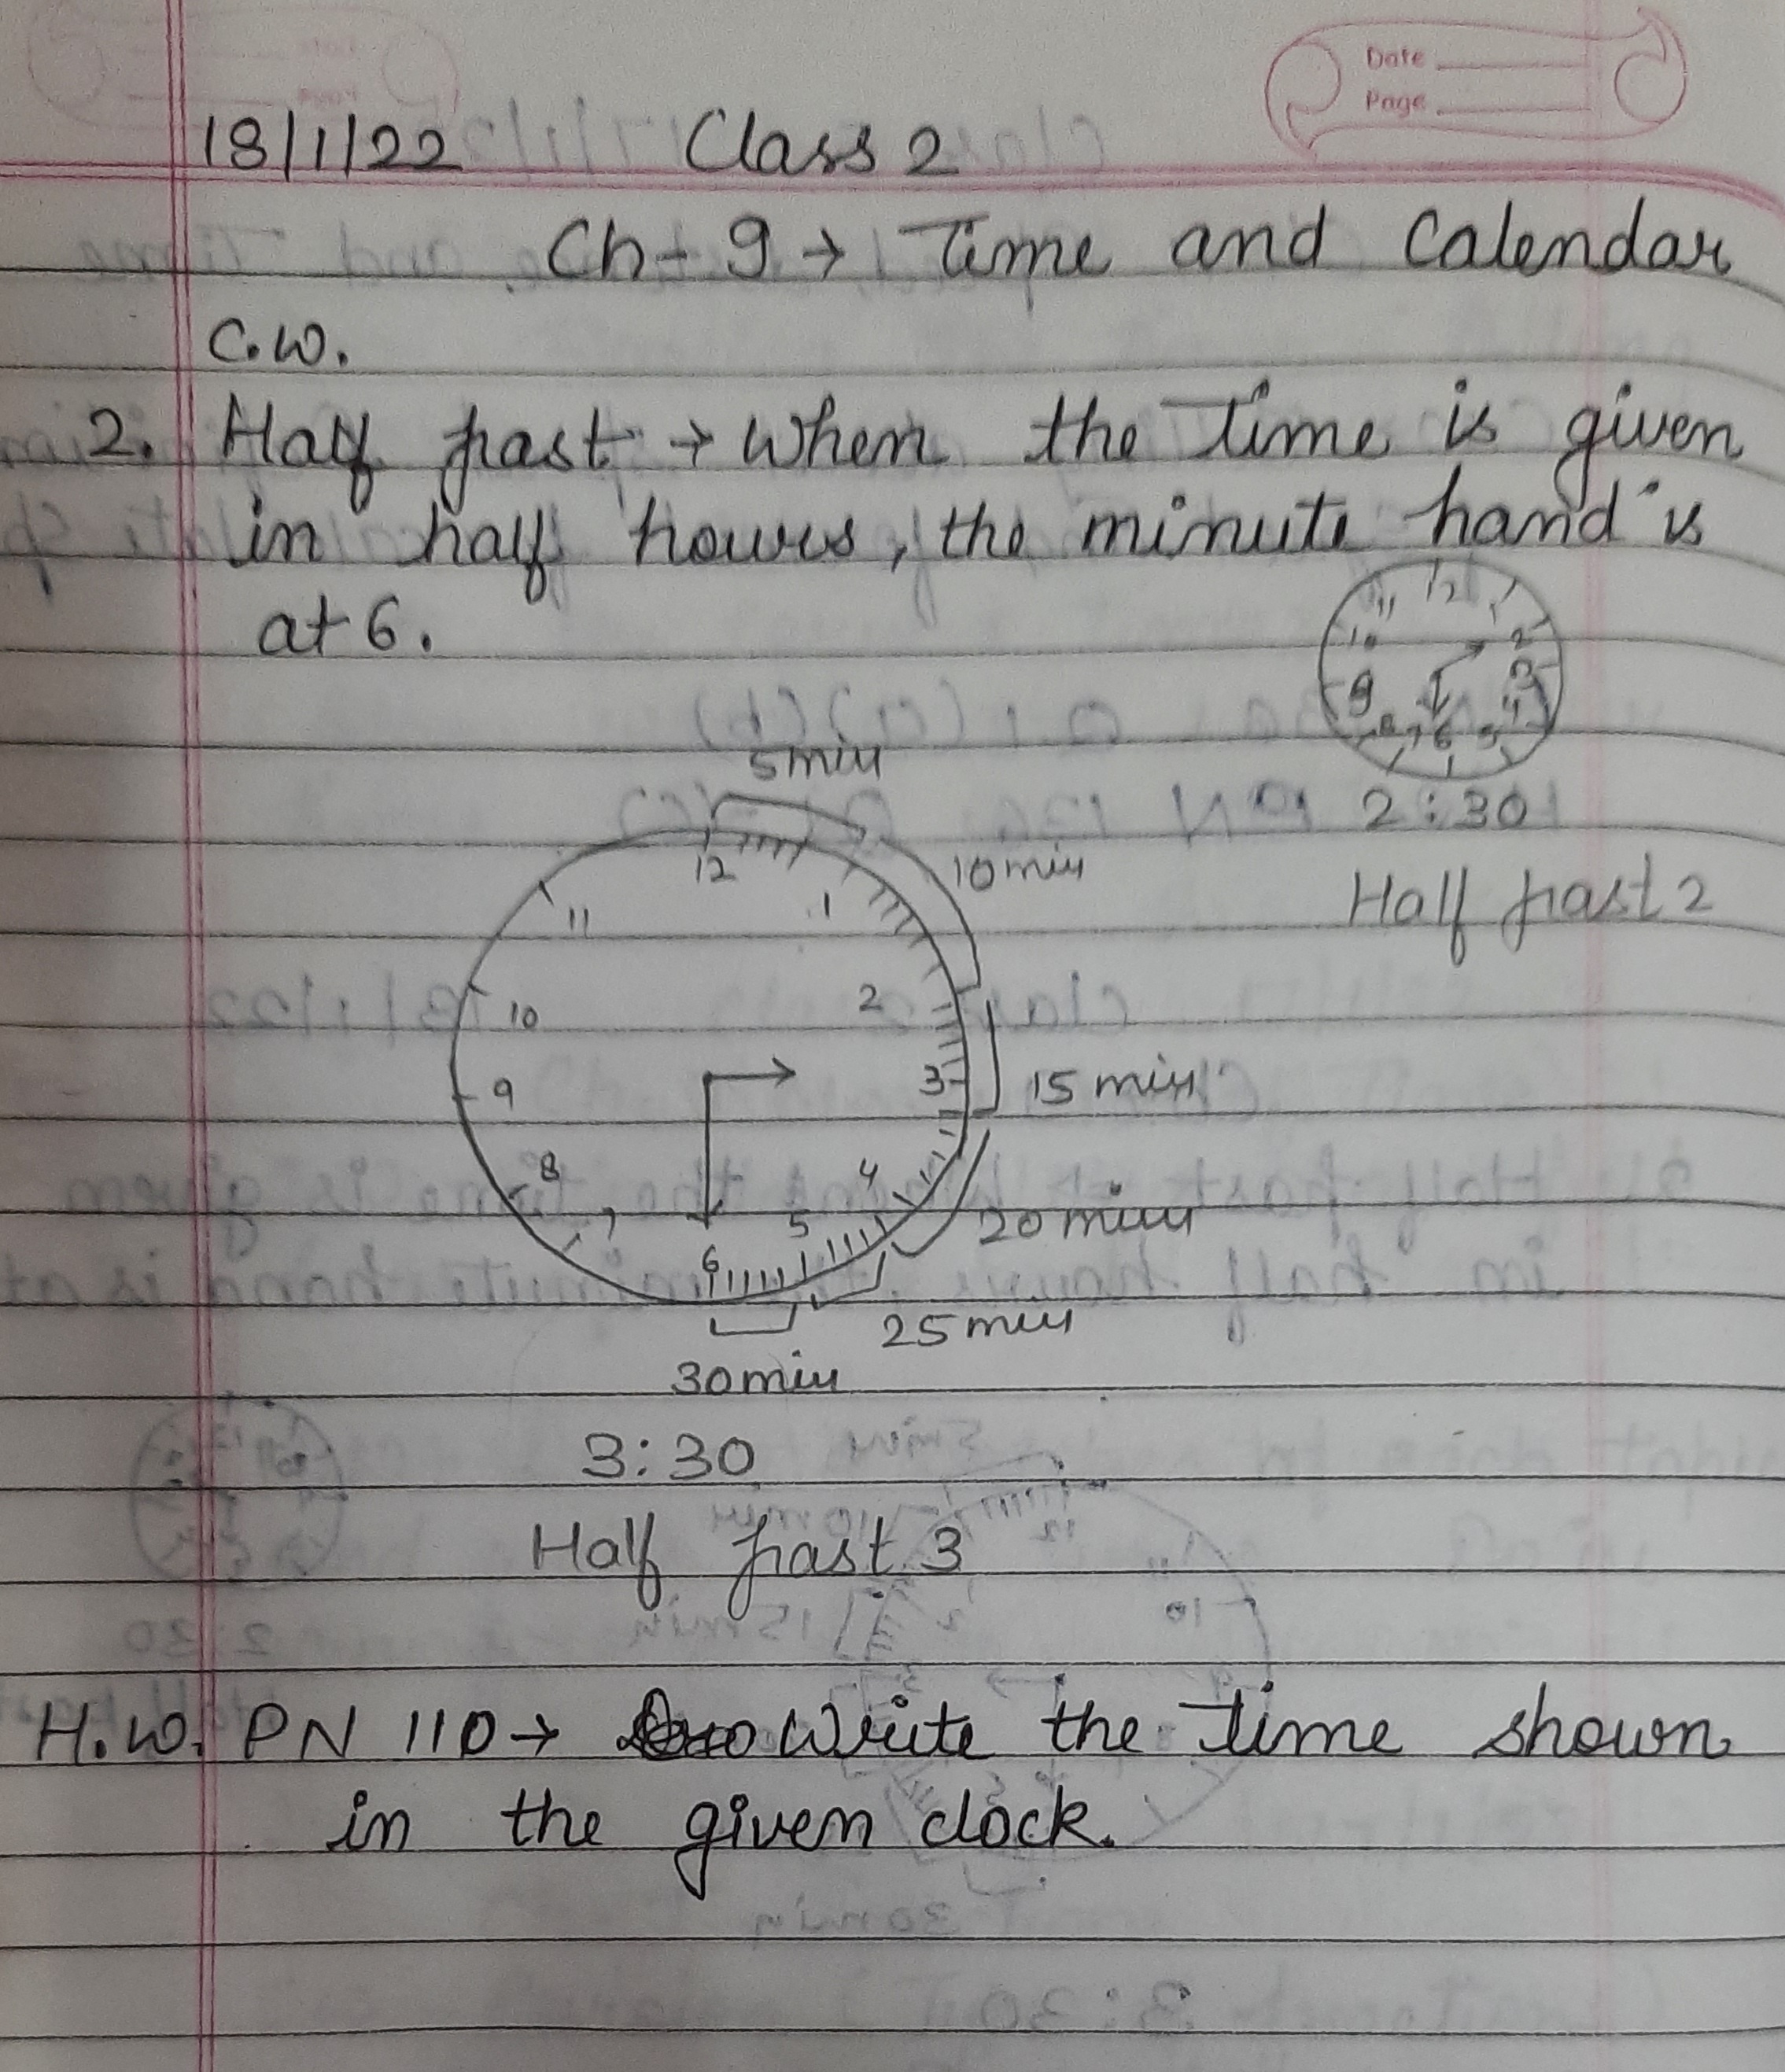 Date
Page
18/1/22 Class 2
Ch-9 → Time and Calendar
C.W.
2. Half past → When the time is given
in half hours, the minute hand is
at 6.
12
11 1
10 2
9 3
8 4
7 6 5
2:30
Half past 2
5 min
12
10 min
11 1
10 2
9 3
15 min
8 4
7 5
20 min
6
25 min
30 min
3:30
Half past 3
H.W. PN 110 → Write the time shown
in the given clock.